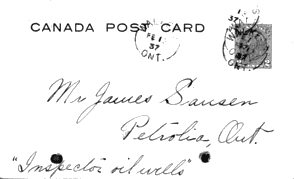 CANADA POST CARD
FE 1
37
ONT.
37
ONT.
2
Mr James Sansen
Petrolia, Ont.
"Inspector oil wells"